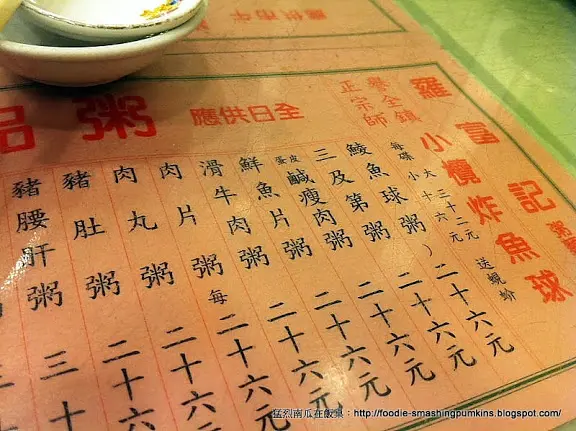 午市供應
全日供應
粥品
羅富記粥
小欖炸魚球
譽全鎮
正宗師
每碟
大三十二元
小十六元
送蜆蚧
鯪魚球粥 二十六元
三及第粥 二十六元
皮蛋鹹瘦肉粥 二十六元
鮮魚片粥 二十六元
滑牛肉粥 每二十六元
肉片粥 二十六
肉丸粥 二十
豬肚粥 三十
豬腰肝粥 三十
猛烈南瓜在飯桌：http://foodie-smashingpumkins.blogspot.com/